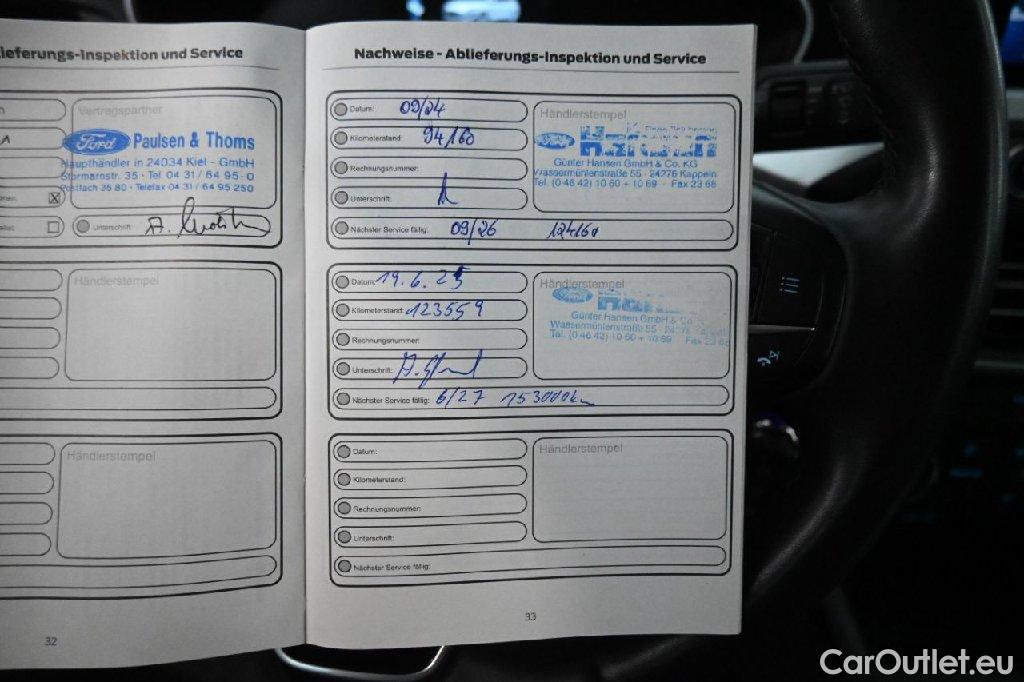 ieferungs-Inspektion und Service
Vertragspartner
Ford Paulsen & Thoms
Haupthändler in 24034 Kiel - GmbH
Stormarnstr. 35 · Tel 04 31 / 64 95 - 0
Postfach 35 80 · Telefax 04 31 / 64 95 250
Unterschrift:
Händlerstempel
Händlerstempel
32
Nachweise - Ablieferungs-Inspektion und Service
Datum: 09/24
Kilometerstand: 94160
Rechnungsnummer:
Unterschrift:
Nächster Service fällig: 09/26 124160
Händlerstempel
Ford Hansen
Günter Hansen GmbH & Co. KG
Wassermühlenstraße 55 · 24776 Kappeln
Tel. (0 46 42) 10 60 + 10 69 · Fax 23 68
Datum: 19.6.25
Kilometerstand: 123559
Rechnungsnummer:
Unterschrift:
Nächster Service fällig: 6/27 153000km
Händlerstempel
Günter Hansen GmbH & Co.
Wassermühlenstraße 55
Tel. (0 46 42) 10 60 + 10 69 Fax 23 68
Datum:
Kilometerstand:
Rechnungsnummer:
Unterschrift:
Nächster Service fällig:
Händlerstempel
33
CarOutlet.eu